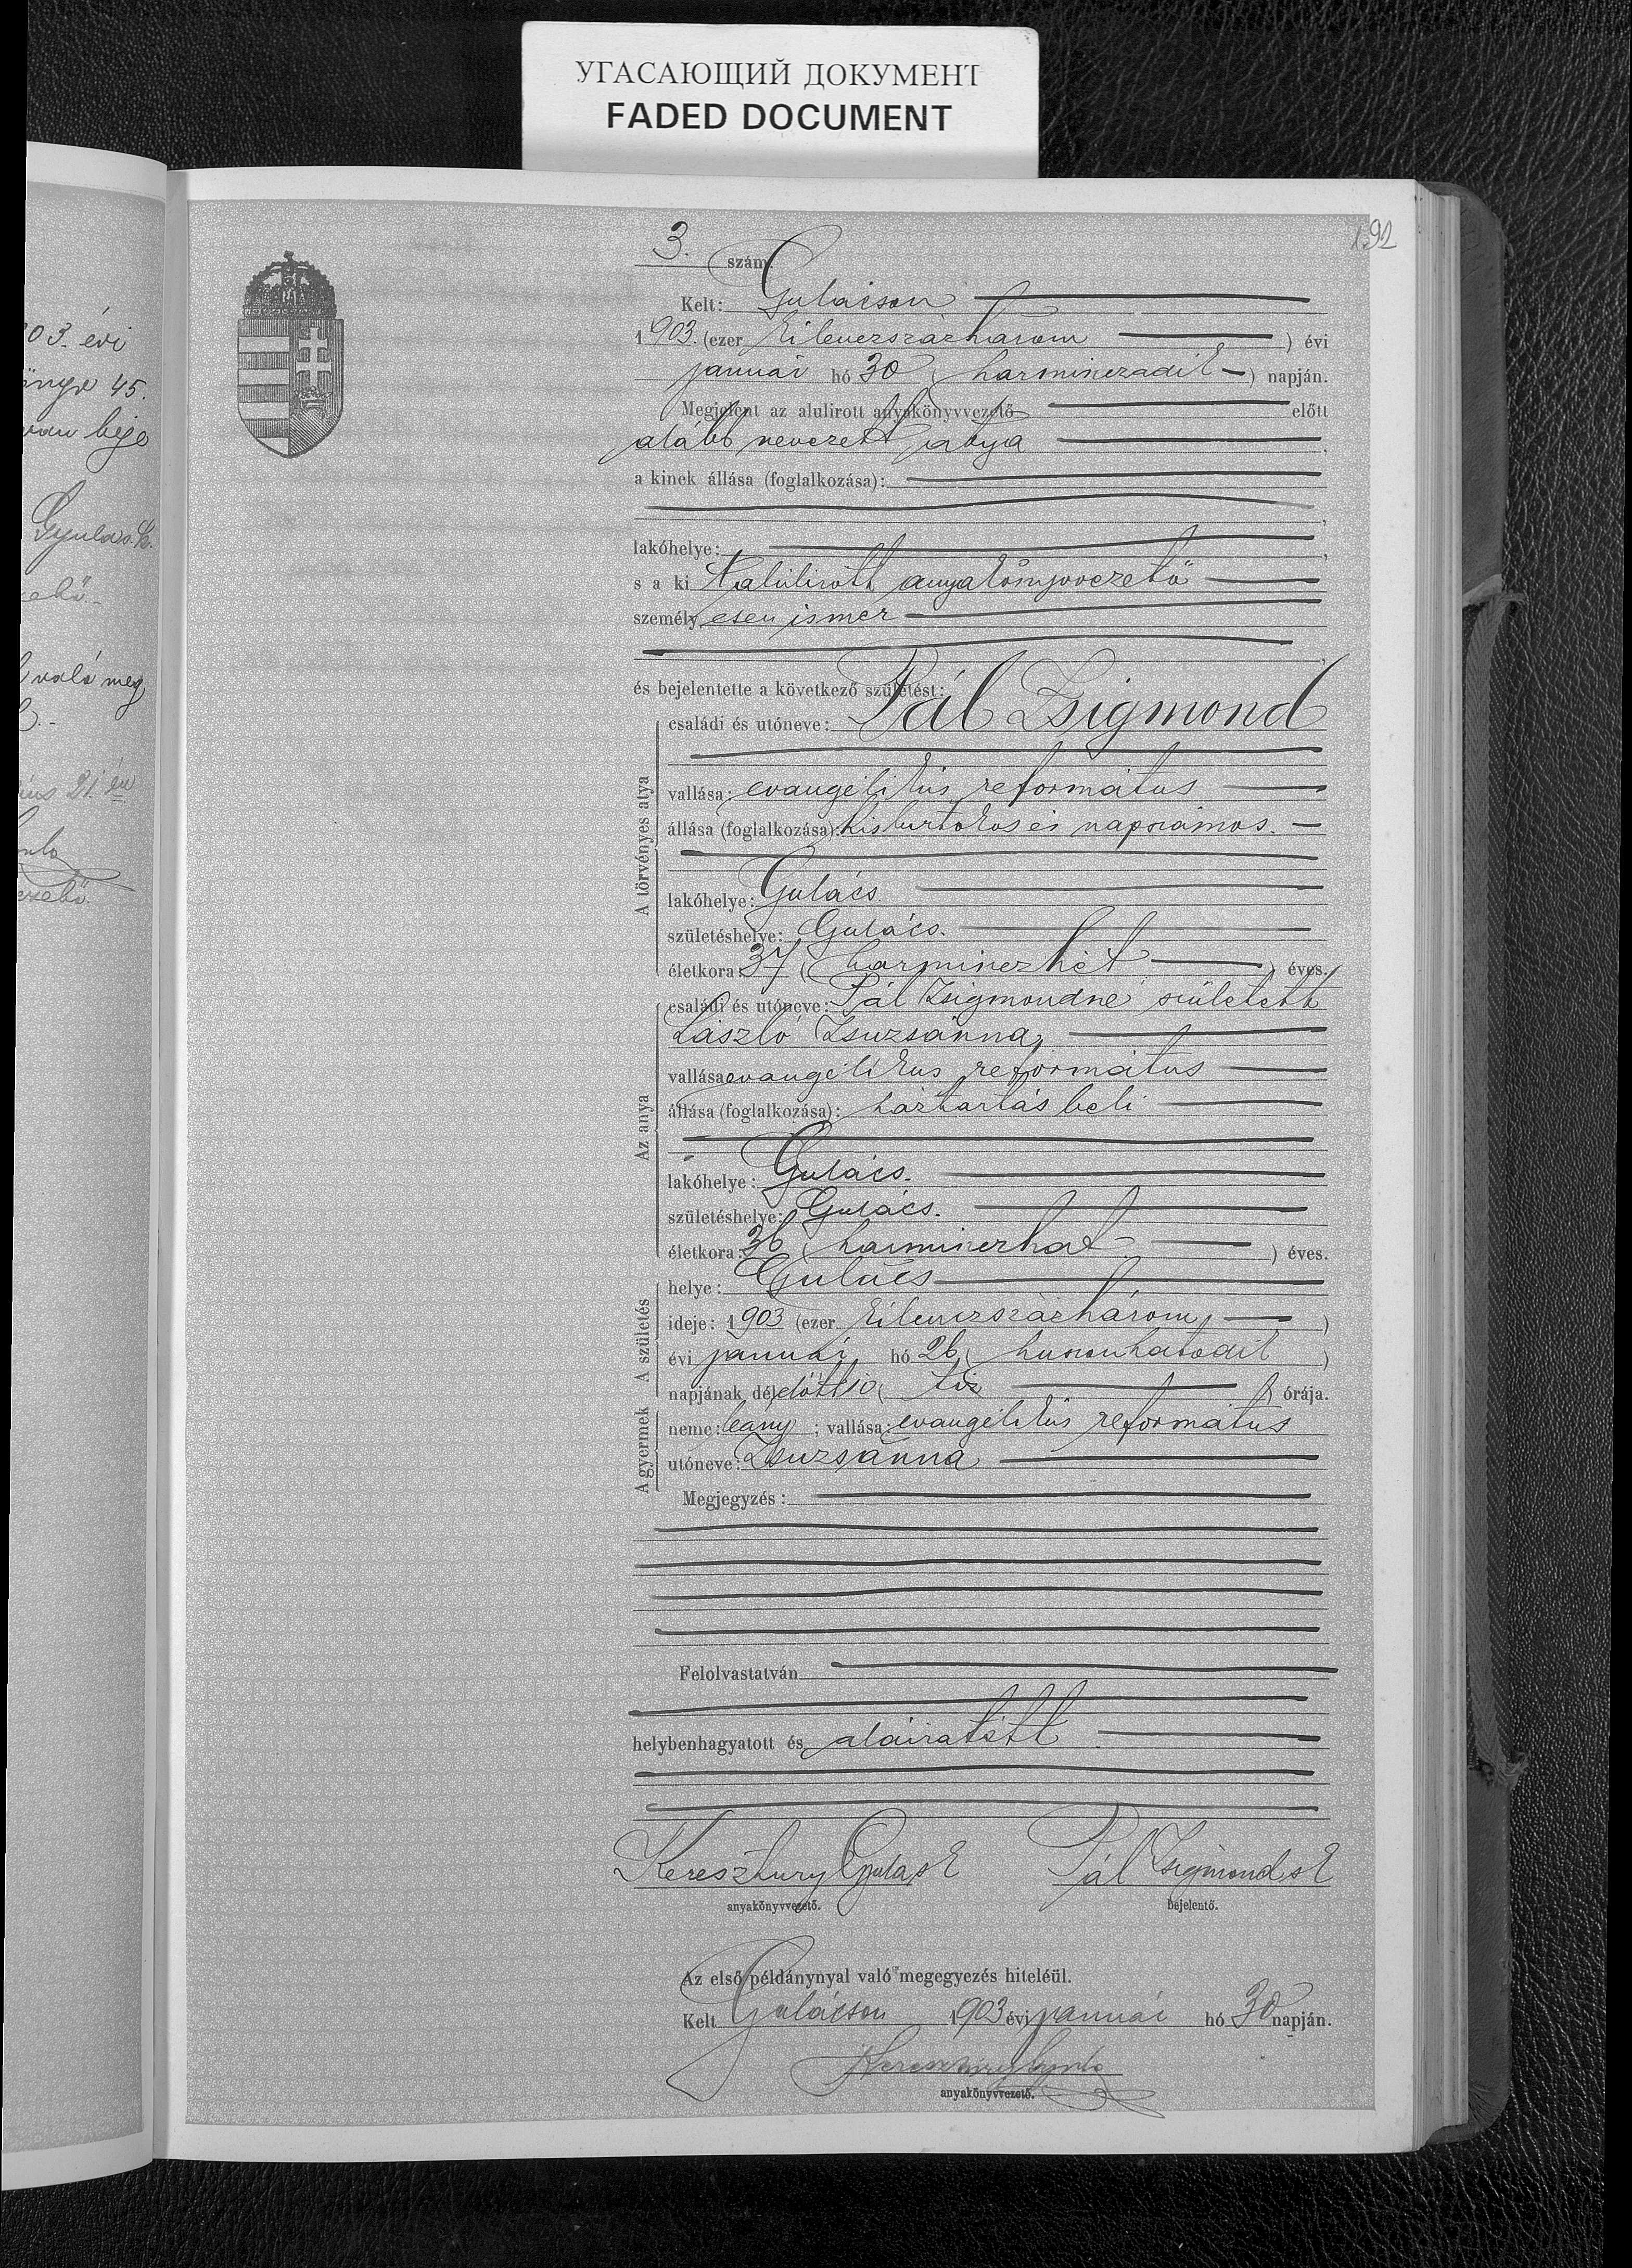 УГАСАЮЩИЙ ДОКУМЕНТ
FADED DOCUMENT
03. évi
45.
Gyula s. k.
való meg
21 én
192
3. szám.
Kelt: Gulácson
1903. (ezer kilenczszázhárom) évi
január hó 30 (harminczadik) napján.
Megjelent az alulirott anyakönyvvezető előtt
alább nevezett atya
a kinek állása (foglalkozása):
lakóhelye:
s a ki t alulirott anyakönyvvezető
személyesen ismer
és bejelentette a következő születést:
A törvényes atya
családi és utóneve: Pál Zsigmond
vallása: evangélikus református
állása (foglalkozása): kisbirtokos és napszámos.
lakóhelye: Gulács.
születéshelye: Gulács.
életkora: 37 (harminczhét) éves.
Az anya
családi és utóneve: Pál Zsigmondné született
László Zsuzsánna,
vallása evangélikus református
állása (foglalkozása): háztartásbeli
lakóhelye: Gulács.
születéshelye: Gulács.
életkora: 36 (harminczhat) éves.
A születés
helye: Gulács
ideje: 1903 (ezer kilenczszázhárom)
évi január hó 26 (huszonhatodik)
napjának délelőtt 10 (tiz) órája.
A gyermek
neme: leány; vallása: evangélikus református
utóneve: Zsuzsánna
Megjegyzés:
Felolvastatván
helybenhagyatott és aláiratott
Keresztury Gyula s k Pál Zsigmond s k
anyakönyvvezető. bejelentő.
Az első példánynyal való megegyezés hiteléül.
Kelt Gulácson 1903 évi január hó 30 napján.
Keresztury Gyula
anyakönyvvezető.